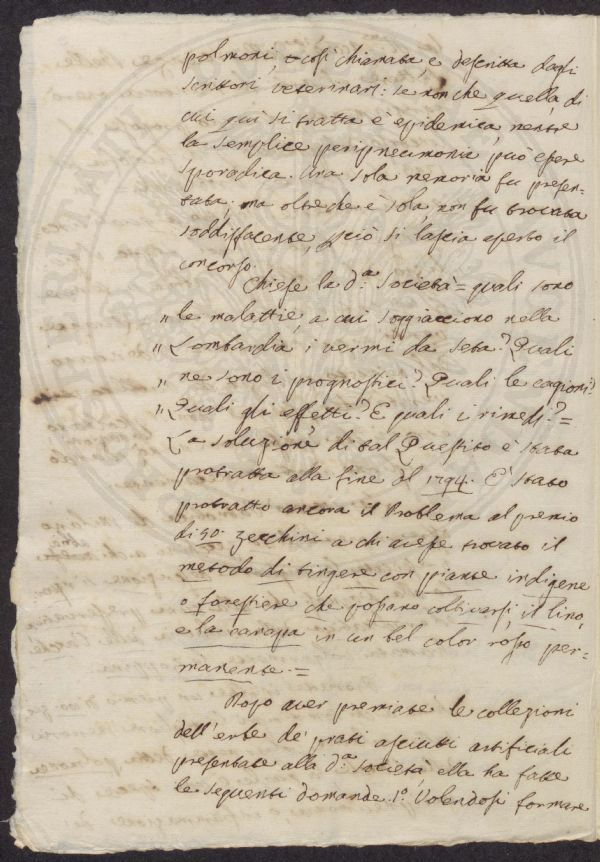 polmoni, così chiamata, e descritta dagli
scrittori veterinarj: se non che quella, di
cui quì si tratta è epidemica, mentre
la semplice peripneumonia può essere
sporadica. Una sola memoria fu presen-
tata; ma oltreche è sola, non fu trovata
soddisfacente, perciò si lascia aperto il
concorso.
Chiese la d.a Società = quali sono
„ le malattie, a cui soggiacciono nella
„ Lombardia i vermi da seta? Quali
„ ne sono i prognostici? Quali le cagioni?
„ Quali gli effetti? E quali i rimedj? =
La soluzione di tal Quesito è stata
protratta alla fine del 1794. È stato
protratto ancora il Problema al premio
di 50. zecchini a chi avesse trovato il
metodo di tingere con piante indigene
o forestiere che possano coltivarsi, il lino,
e la canapa in un bel color rosso per-
manente. =
Dopo aver premiate le collezioni
dell'erbe de' prati asciutti artificiali
presentate alla d.a Società, ella ha fatte
le seguenti domande. 1.o Volendosi formare